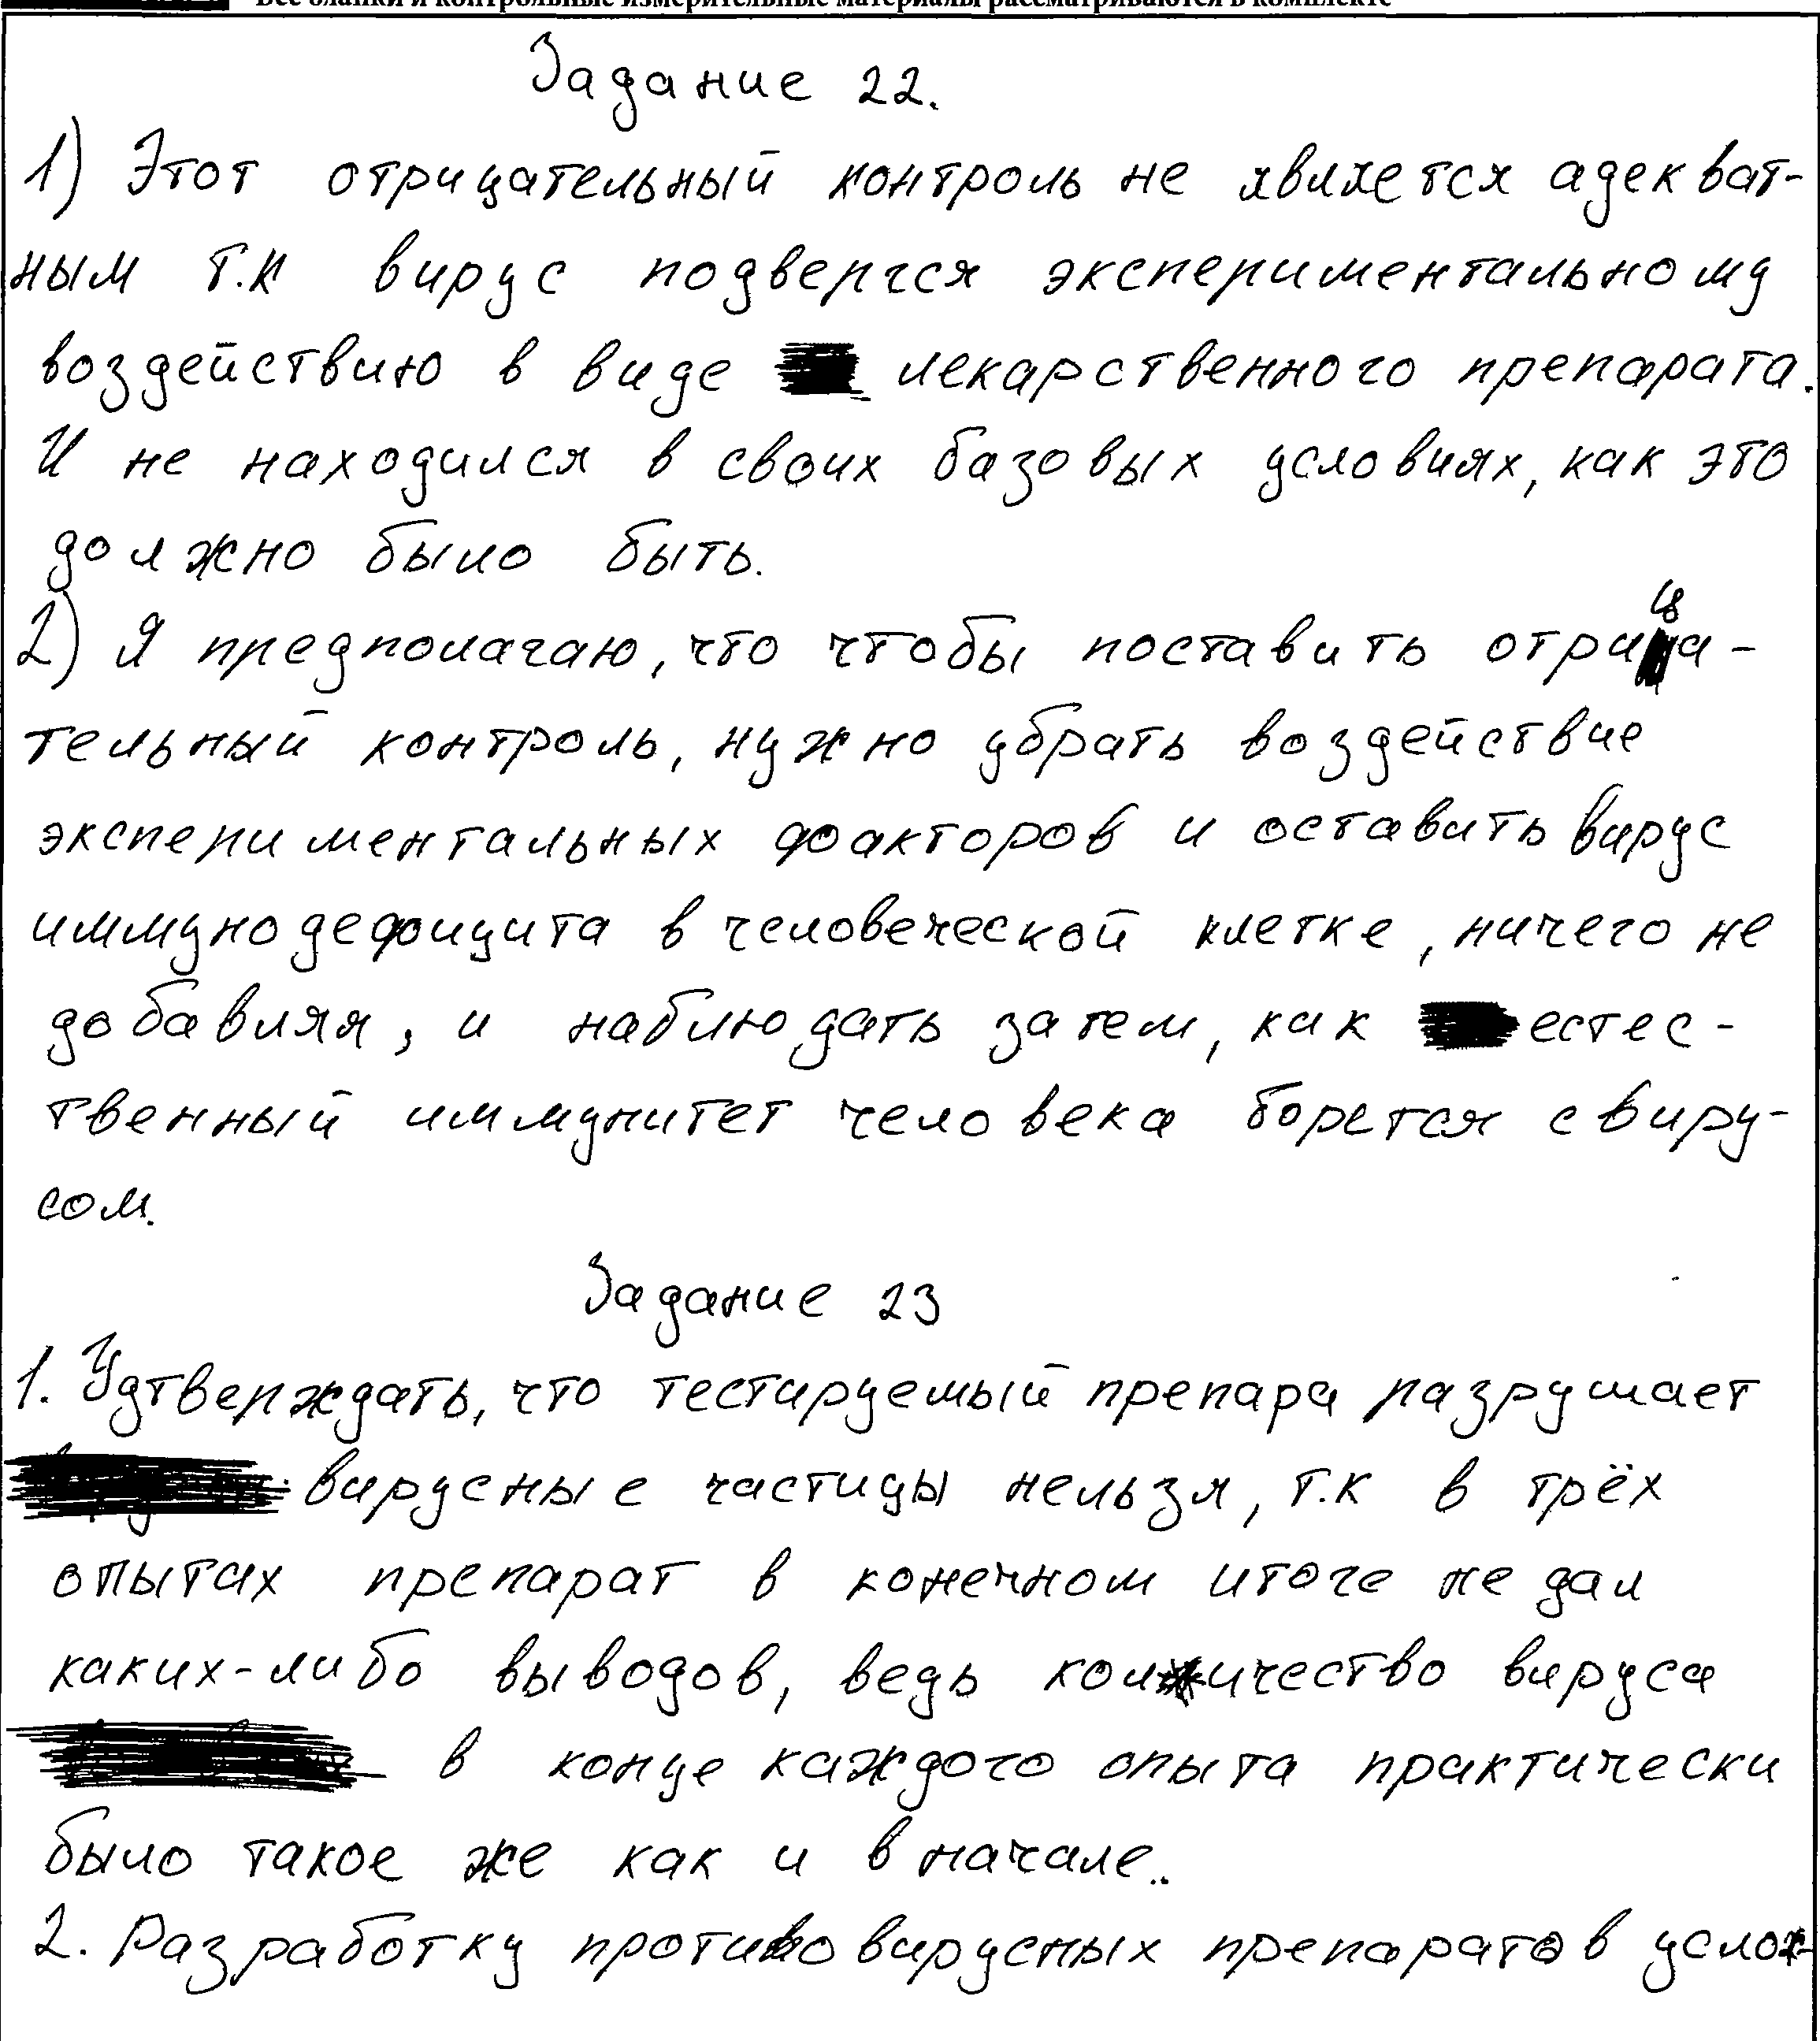 Все бланки и контрольные измерительные материалы рассматриваются в комплекте
Задание 22.
1) Этот отрицательный контроль не является адекват-
ным т.к вирус подвергся экспериментальному
воздействию в виде лекарственного препарата.
И не находился в своих базовых условиях, как это
должно было быть.
2) Я предполагаю, что чтобы поставить отрица-
тельный контроль, нужно убрать воздействие
экспериментальных факторов и оставить вирус
иммунодефицита в человеческой клетке, ничего не
добавляя, и наблюдать затем, как естес-
твенный иммунитет человека борется с виру-
сом.
Задание 23
1. Удтверждать, что тестируемый препара разрушает
вирусные частицы нельзя, т.к в трёх
опытах препарат в конечном итоге не дал
каких-либо выводов, ведь количество вируса
в конце каждого опыта практически
было такое же как и в начале..
2. Разработку противовирусных препаратов услож-